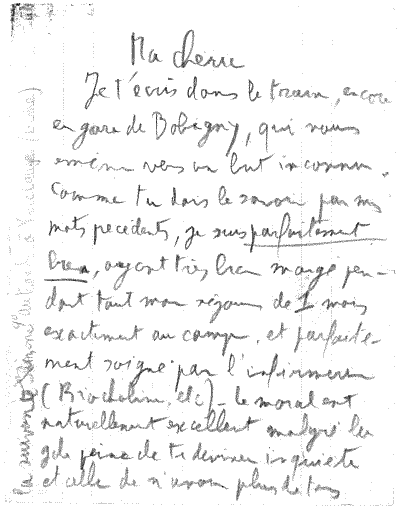 Ma cherie
Je t'écris dans le train, encore
en gare de Bobigny, qui nous
emène vers un but inconnu.
Comme tu dois le savoir par mes
mots précédents, je suis parfaitement
bien, ayant très bien mangé pen-
dant tout mon séjour de 1 mois
exactement au camp, et parfaite-
ment soigné par l'infirmerie
(Biocholine, etc) - le moral est
naturellement excellent malgré la
gde peine de te deviner inquiète
et celle de n'avoir plus de tes